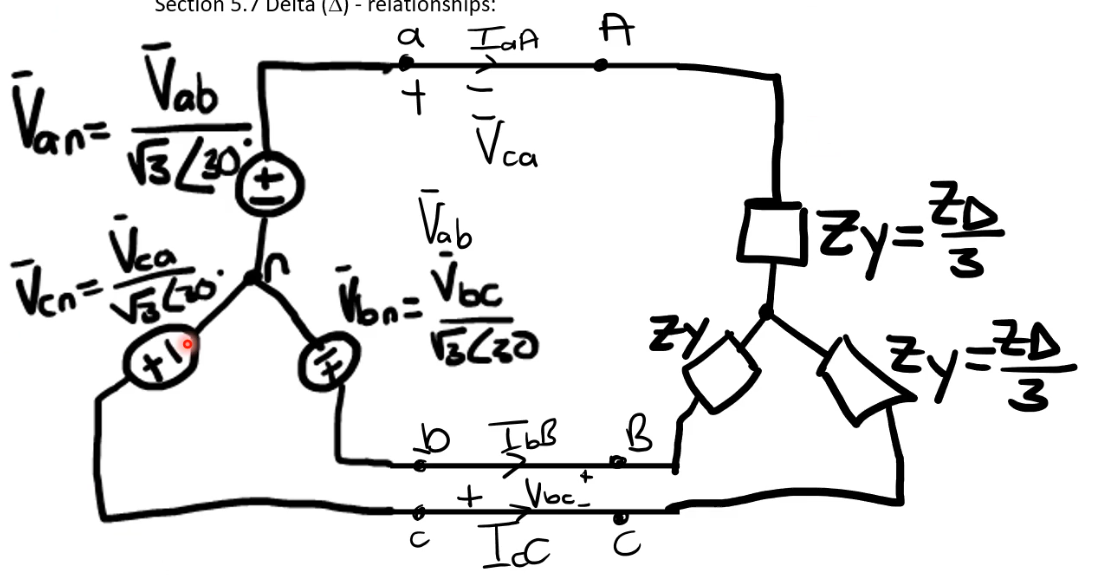 Section 5.7 Delta (Δ) - relationships:
a I_aA A
+ -
V̄ca
V̄an = V̄ab / √3∠30°
+
-
V̄cn = V̄ca / √3∠30°
n
V̄ab
V̄bn = V̄bc / √3∠30
Zy = ZΔ / 3
Zy
Zy = ZΔ / 3
+ -
- +
b I_bB B
+ Vbc + -
c I_cC C